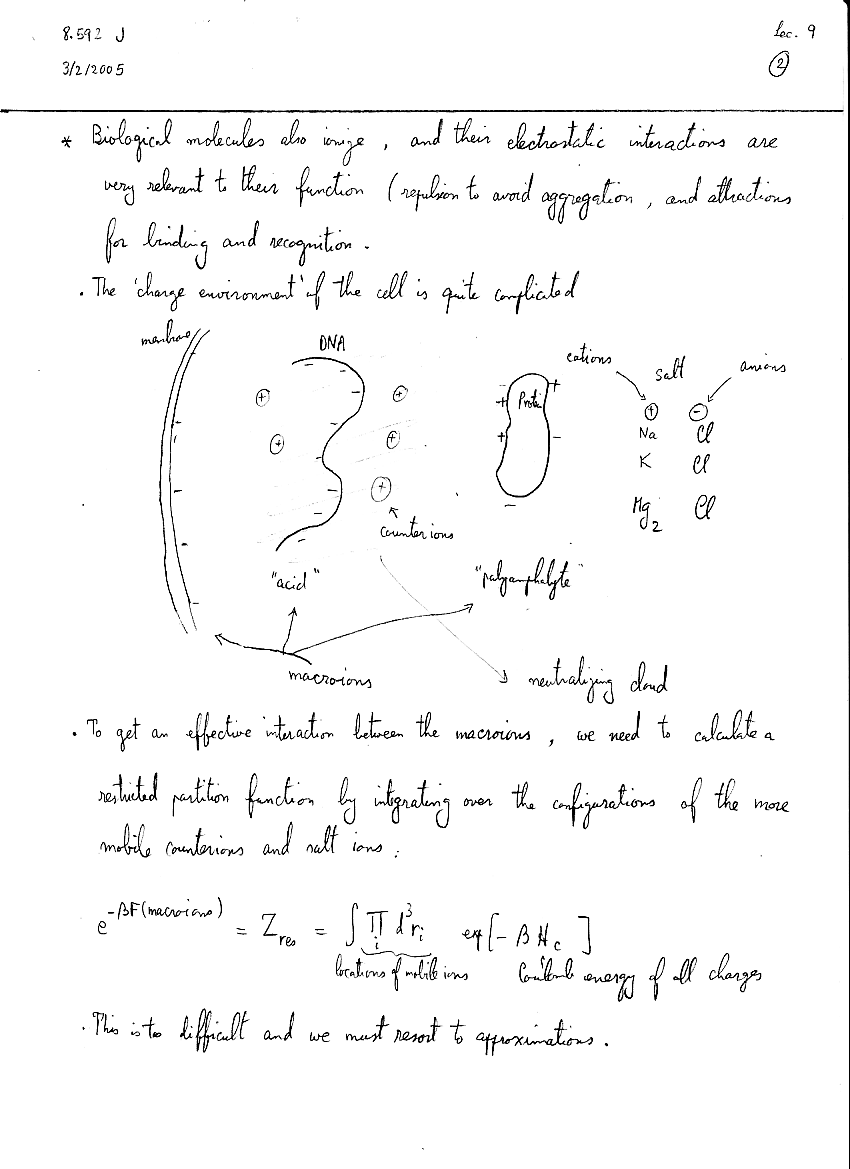 8.592 J
Lec. 9
3/2/2005
2
* Biological molecules also ionize, and their electrostatic interactions are
very relevant to their function (repulsion to avoid aggregation, and attractions
for binding and recognition.
. The 'charge environment' of the cell is quite complicated
membrane
DNA
cations
salt
anions
+ + - - - - - - - + + +
- + + - + -
Protein
+ -
Na Cl
K Cl
Mg2 Cl
counterions
"acid"
"polyampholyte"
macroions
neutralizing cloud
. To get an effective interaction between the macroions, we need to calculate a
restricted partition function by integrating over the configurations of the more
mobile counterions and salt ions:
e^{-βF(macroions)} = Z_{res} = ∫ ∏_i d³r_i exp[-βH_c]
locations of mobile ions Coulomb energy of all charges
. This is too difficult and we must resort to approximations.